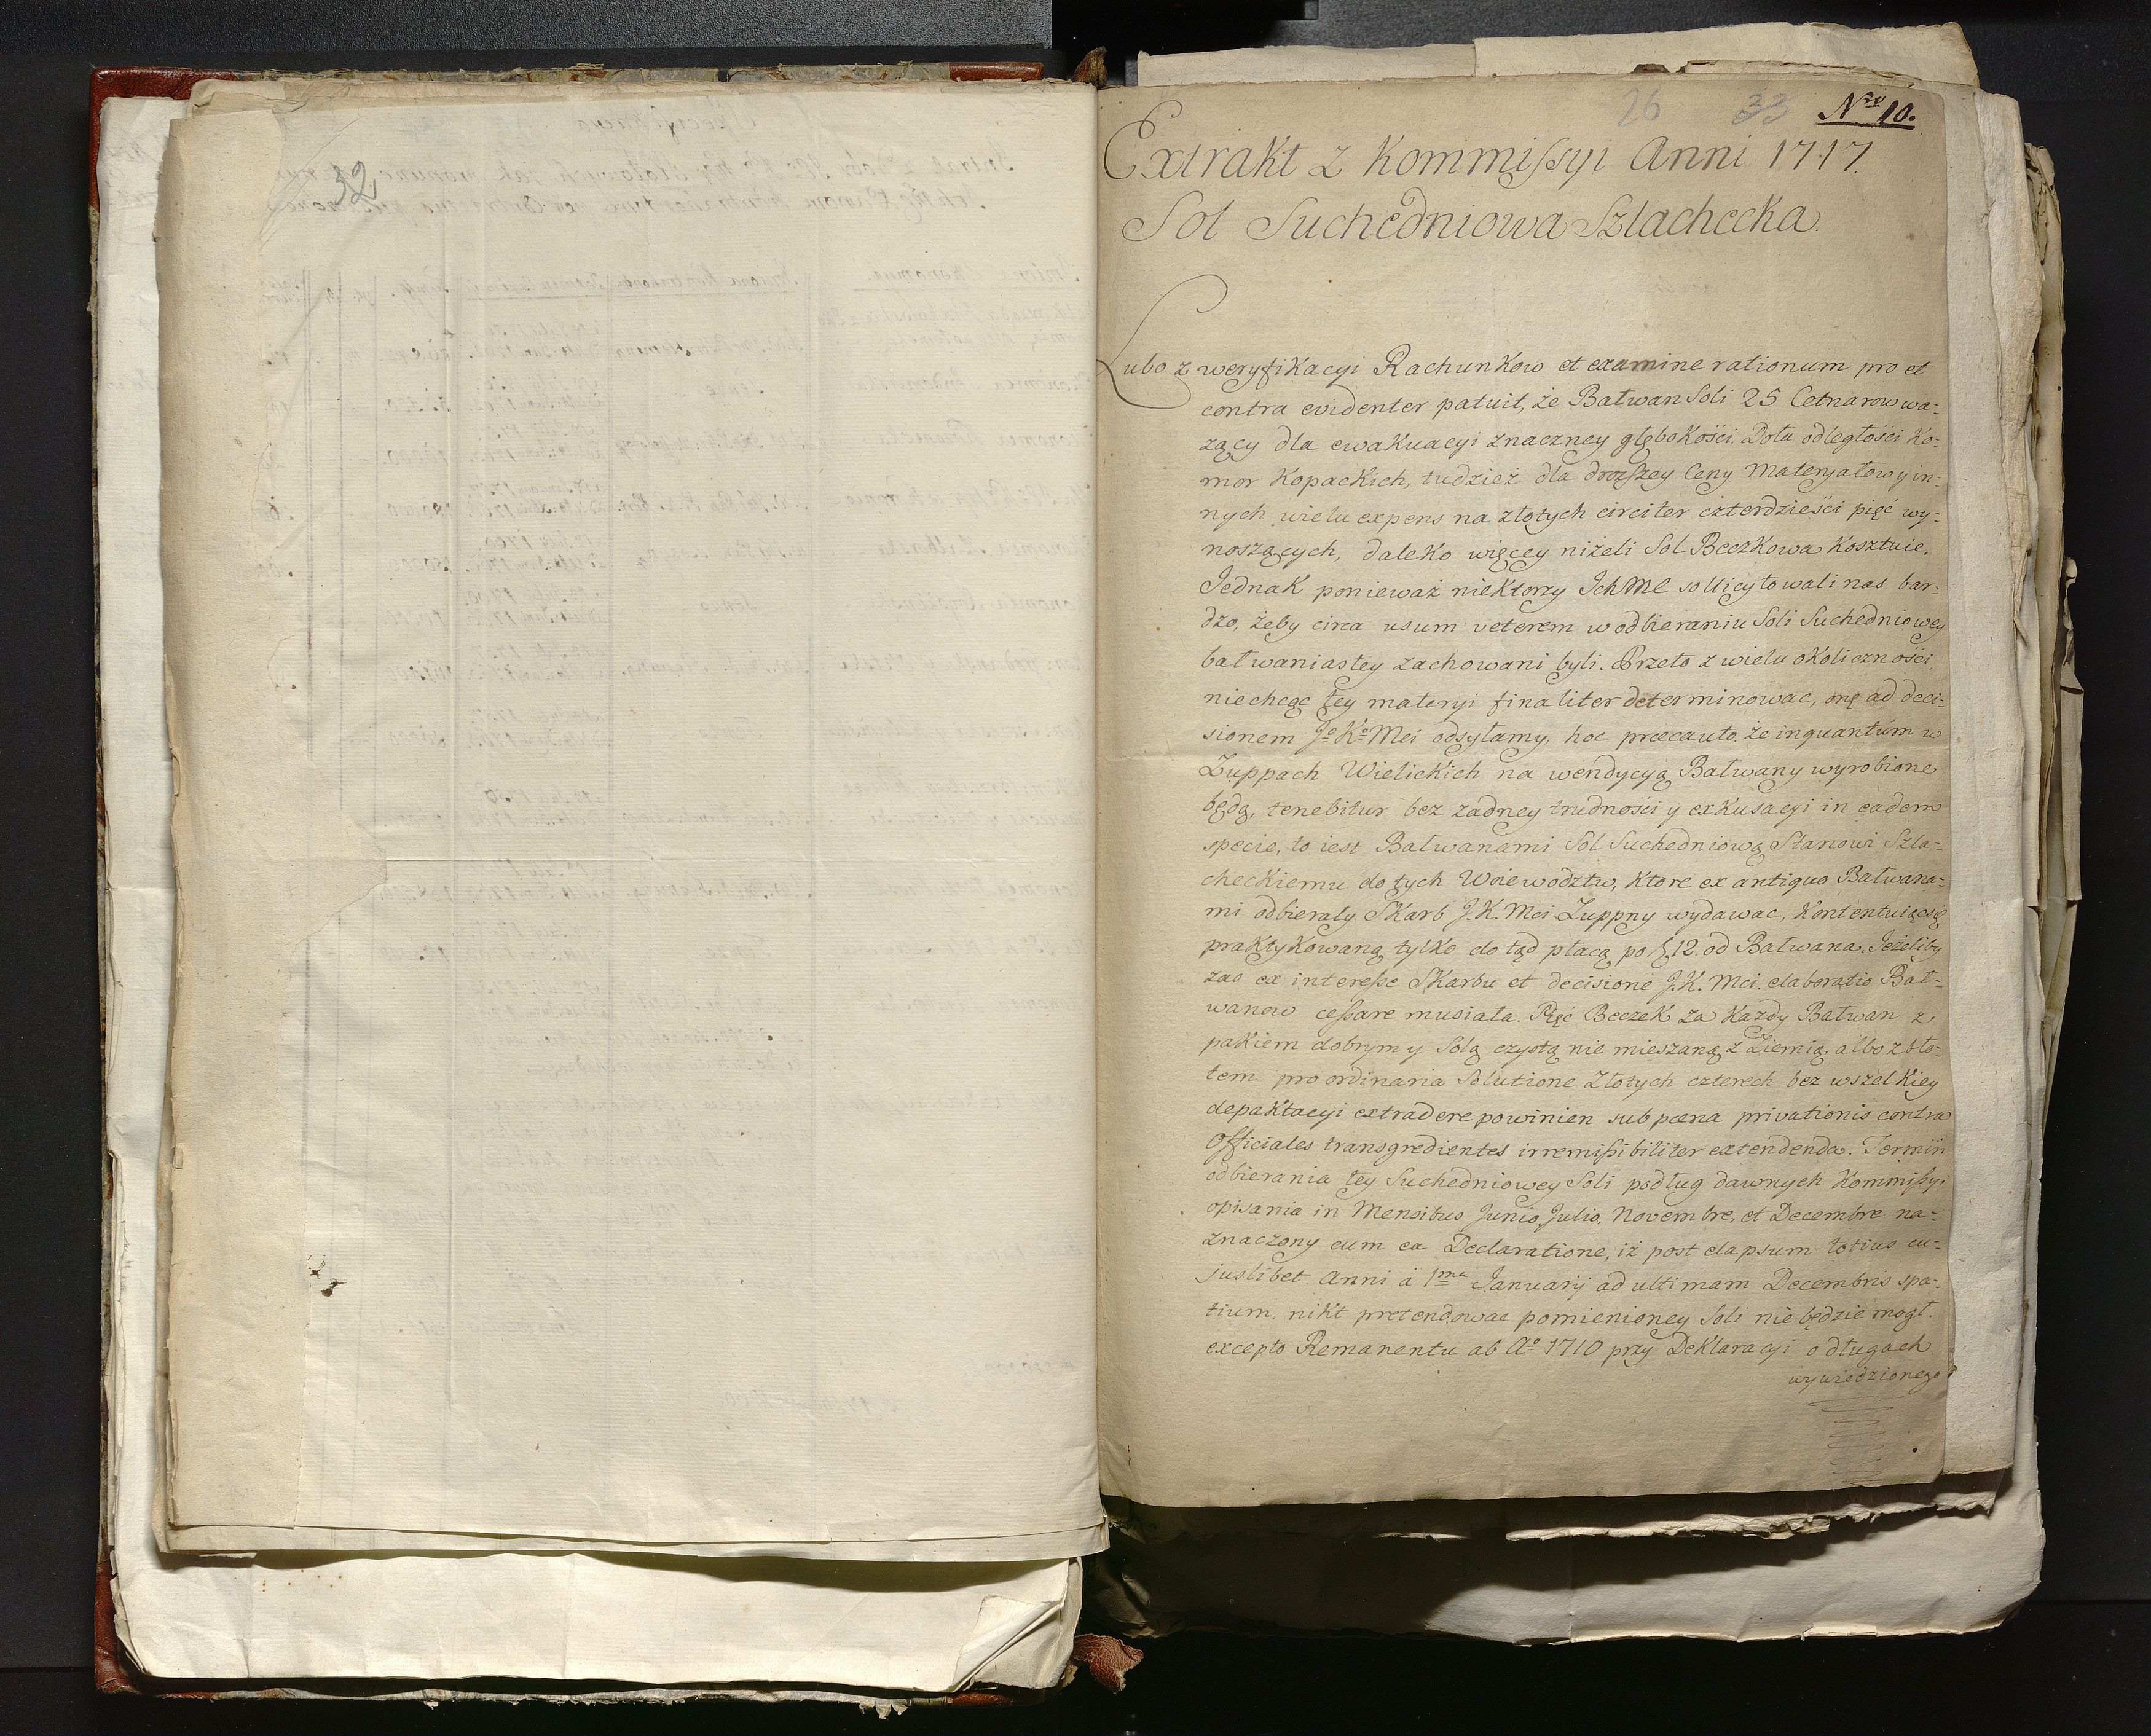 32
26 33 Nro 10.
Extrakt z Kommißyi Anni 1717.
Sol Suchedniowa Szlachecka.
Lubo z weryfikacyi Rachunkow et examine rationum pro et
contra evidenter patuit, że Bałwan Soli 25 Cetnarow wa=
zący dla ewakuacyi znaczney głębokości, Dołu odległości Ko=
mor Kopackich, tudzież dla drozszey Ceny Materyałow y in=
nych wielu expens na złotych circiter czterdzieści pięć wy=
noszących, daleko więcey niżeli Sol Beczkowa Kosztuie.
Jednak ponieważ niektorzy IchMC sollicytowali nas bar=
dzo, żeby circa usum veterem w odbieraniu Soli Suchedniowey
bałwaniastey zachowani byli. Przeto z wielu okoliczności
niechcąc tey materyi finaliter determinowac, onę ad deci=
sionem Jo Ko Mci odsyłamy, hoc præcauto, że inquantum w
Zuppach Wielickich na wendycyą Bałwany wyrobione
będą, tenebitur bez zadney trudności y exkusacyi in eadem
specie, to iest Bałwanami Sol Suchedniową Stanowi Szla=
checkiemu do tych Woiewodztw, ktore ex antiquo Bałwana=
mi odbierały Skarb J.K.Mci Zuppny wydawac, Kontentuiąc się
praktykowaną tylko do tąd płacą po 12 od Bałwana. Jeżeliby
zas ex intereße Skarbu et decisione J.K.Mci. elaboratio Bał=
wanow ceßare musiała. Pięć Beczek za Kazdy Bałwan z
pakiem dobrym y Solą czystą nie mieszaną z Ziemią, albo z bło=
tem pro ordinaria Solutione Złotych czterech bez wszelkiey
depaktacyi extradere powinien sub pœna privationis contra
Officiales transgredientes irremißibiliter extendenda. Termin
odbierania tey Suchedniowey Soli podług dawnych Kommißyi
opisania in Mensibus Junio, Julio, Novembre, et Decembre na=
znaczony cum ea Declaratione, iż post elapsum totius cu=
juslibet Anni á 1ma Januarij ad ultimam Decembris spa=
tium, nikt pretendowac pomienioney Soli nie będzie mogł.
excepto Remanentu ab Ao 1710 przy Deklaracyi o długach
wywiedzionego